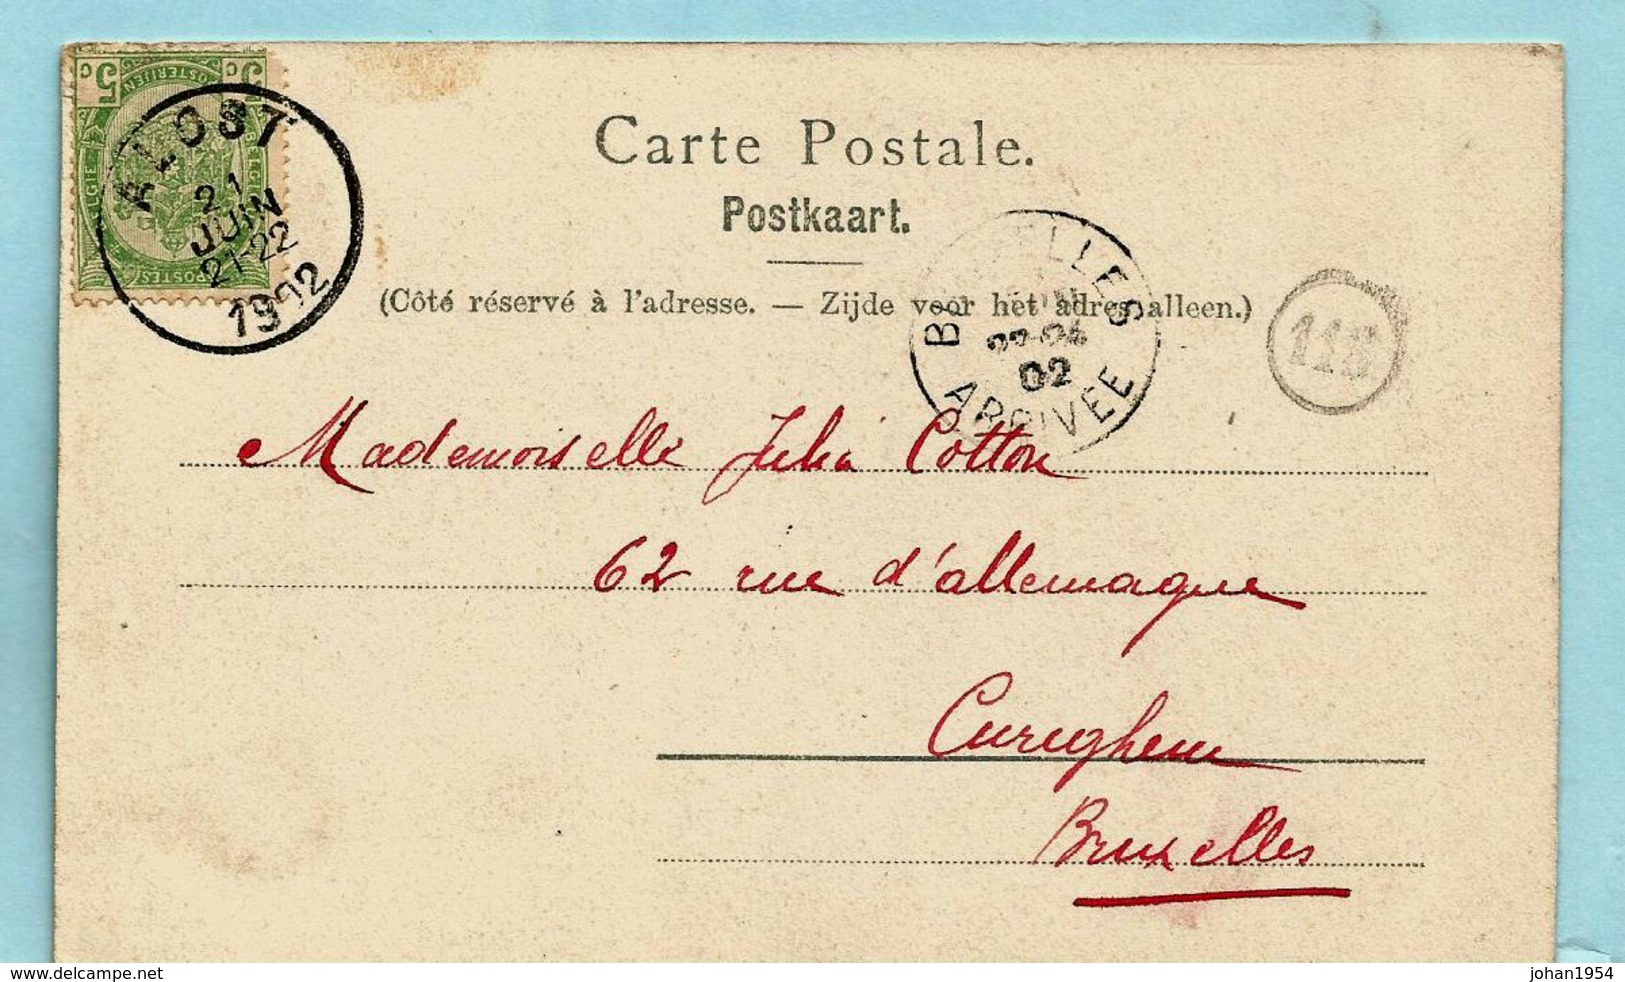 5 c
POSTERIJEN
5 c
BELGIE
BELGIQUE
POSTES
ALOST
21
JUIN
21-22
1902
Carte Postale.
Postkaart.
(Côté réservé à l'adresse. — Zijde voor het adres alleen.)
BRUXELLES
02
ARRIVÉE
118
Mademoiselle Julia Cotton
62 rue d'allemagne
Cureghem
Bruxelles
johan1954